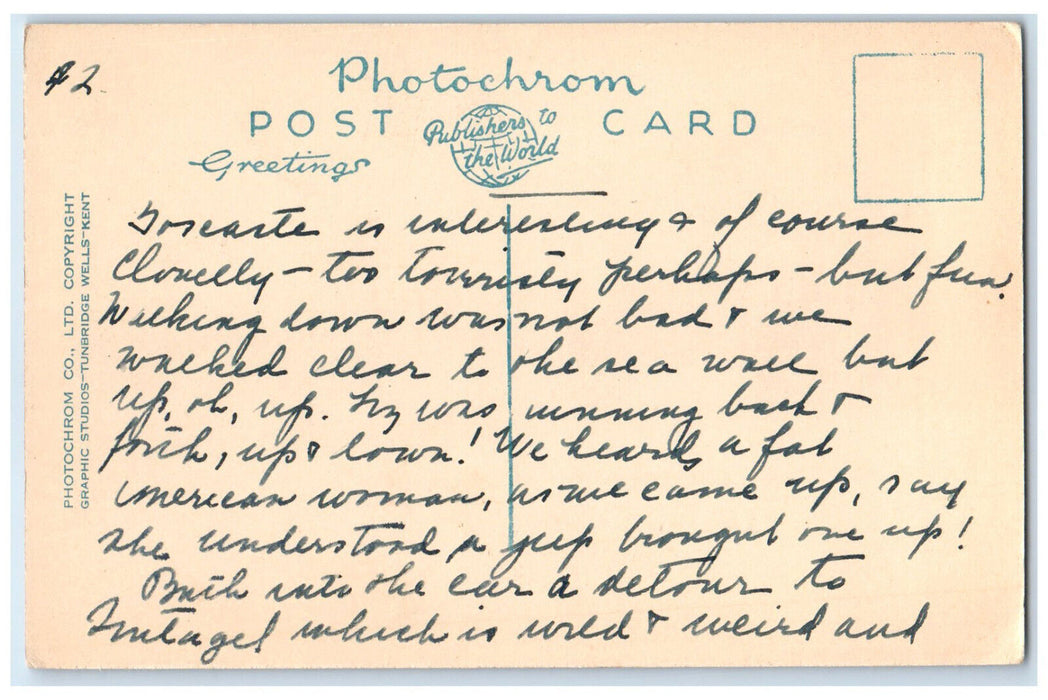 #2
Photochrom
POST CARD
Publishers to
the World
Greetings
PHOTOCHROM CO., LTD. COPYRIGHT
GRAPHIC STUDIOS-TUNBRIDGE WELLS-KENT
is interesting & of course
Clovelly - too touristy perhaps - but fun.
Walking down was not bad & we
walked clear to the sea wall but
up, oh, up. was running back &
forth, up & down! We heard a fat
American woman, as we came up, say
she understood a jeep brought one up!
Back into the car a detour to
Tintagel which is wild & weird and